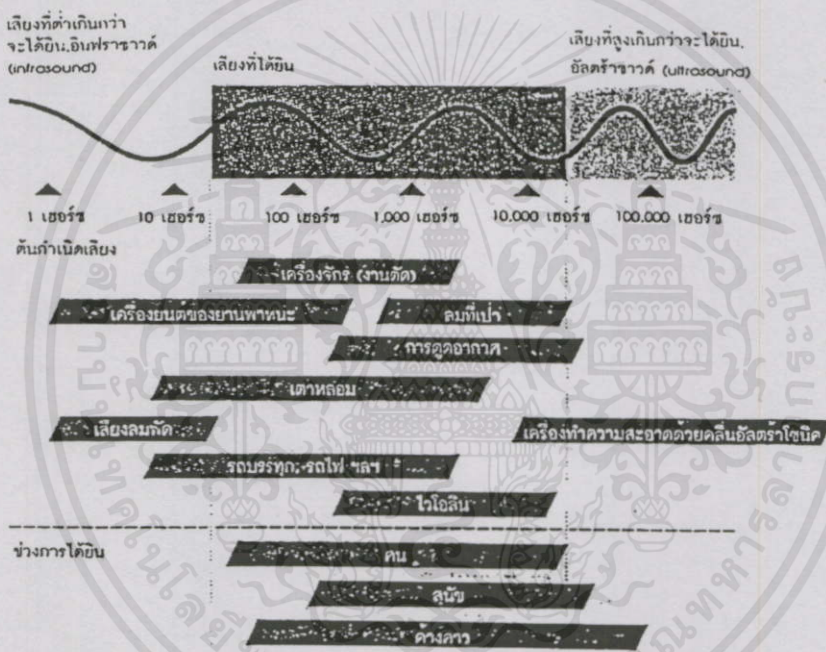 เสียงที่ต่ำเกินกว่า
จะได้ยิน.อินฟราซาวด์
(infrasound)
เสียงที่ได้ยิน
เสียงที่สูงเกินกว่าจะได้ยิน.
อัลตร้าซาวด์ (ultrasound)
1 เฮอร์ซ 10 เฮอร์ซ 100 เฮอร์ซ 1,000 เฮอร์ซ 10,000 เฮอร์ซ 100,000 เฮอร์ซ
ต้นกำเนิดเสียง
เครื่องจักร (งานตัด)
เครื่องยนต์ของยานพาหนะ ลมที่เป่า
การดูดอากาศ
เตาหลอม
เสียงลมพัด เครื่องทำความสะอาดด้วยคลื่นอัลตร้าโซนิค
รถบรรทุก.รถไฟ ฯลฯ
ไวโอลิน
ช่วงการได้ยิน
คน
สุนัข
ค้างคาว